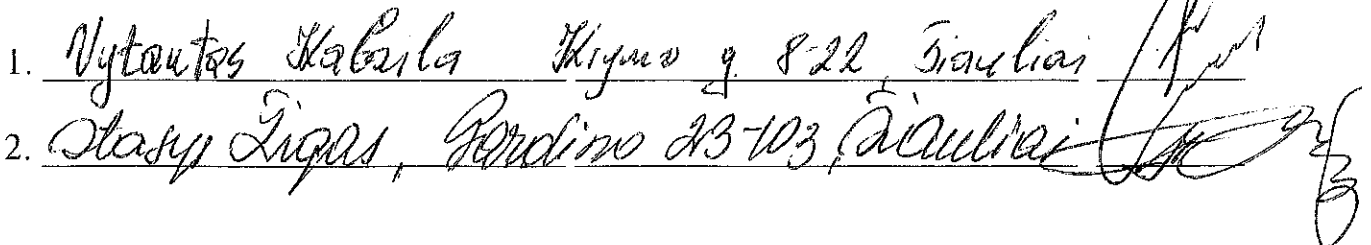 1. Vytautas Kabaila Krymo g. 8-22, Šiauliai
2. Stasys Žigas, Gardino 23-103, Šiauliai